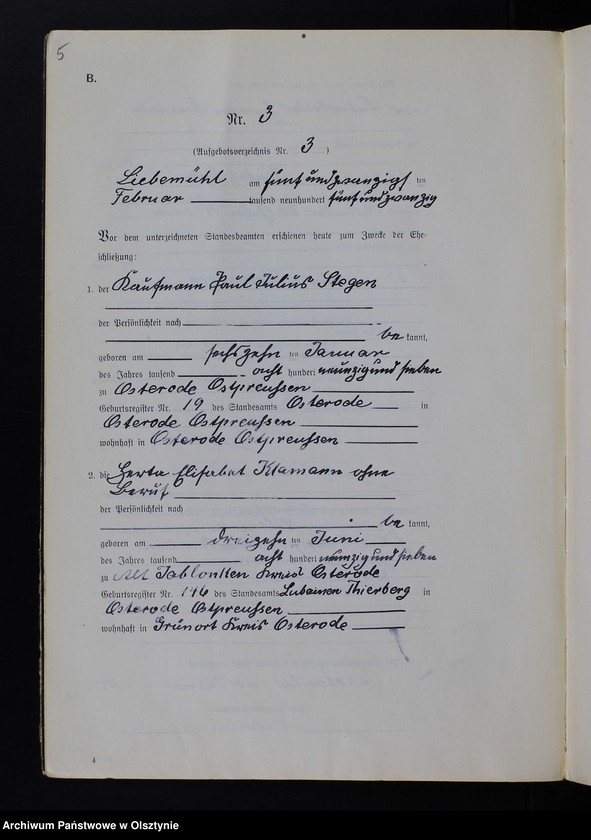 5
B.
Nr. 3
(Aufgebotsverzeichnis Nr. 3)
Liebemühl am fünfundzwanzigsten
Februar tausend neunhundert fünfundzwanzig
Vor dem unterzeichneten Standesbeamten erschienen heute zum Zwecke der Ehe-
schließung:
1. der Kaufmann Paul Julius Stegen
der Persönlichkeit nach
be kannt,
geboren am sechszehn ten Januar
des Jahres tausend acht hundert neunzigundsieben
zu Osterode Ostpreussen
Geburtsregister Nr. 19 des Standesamts Osterode in
Osterode Ostpreussen
wohnhaft in Osterode Ostpreussen
2. die Herta Elisabet Klamann ohne
Beruf
der Persönlichkeit nach
be kannt,
geboren am dreizehn ten Juni
des Jahres tausend acht hundert neunzigundsieben
zu Alt Jablonken Kreis Osterode
Geburtsregister Nr. 146 des Standesamts Thierberg in
Osterode Ostpreussen
wohnhaft in Grünort Kreis Osterode
4
Archiwum Państwowe w Olsztynie